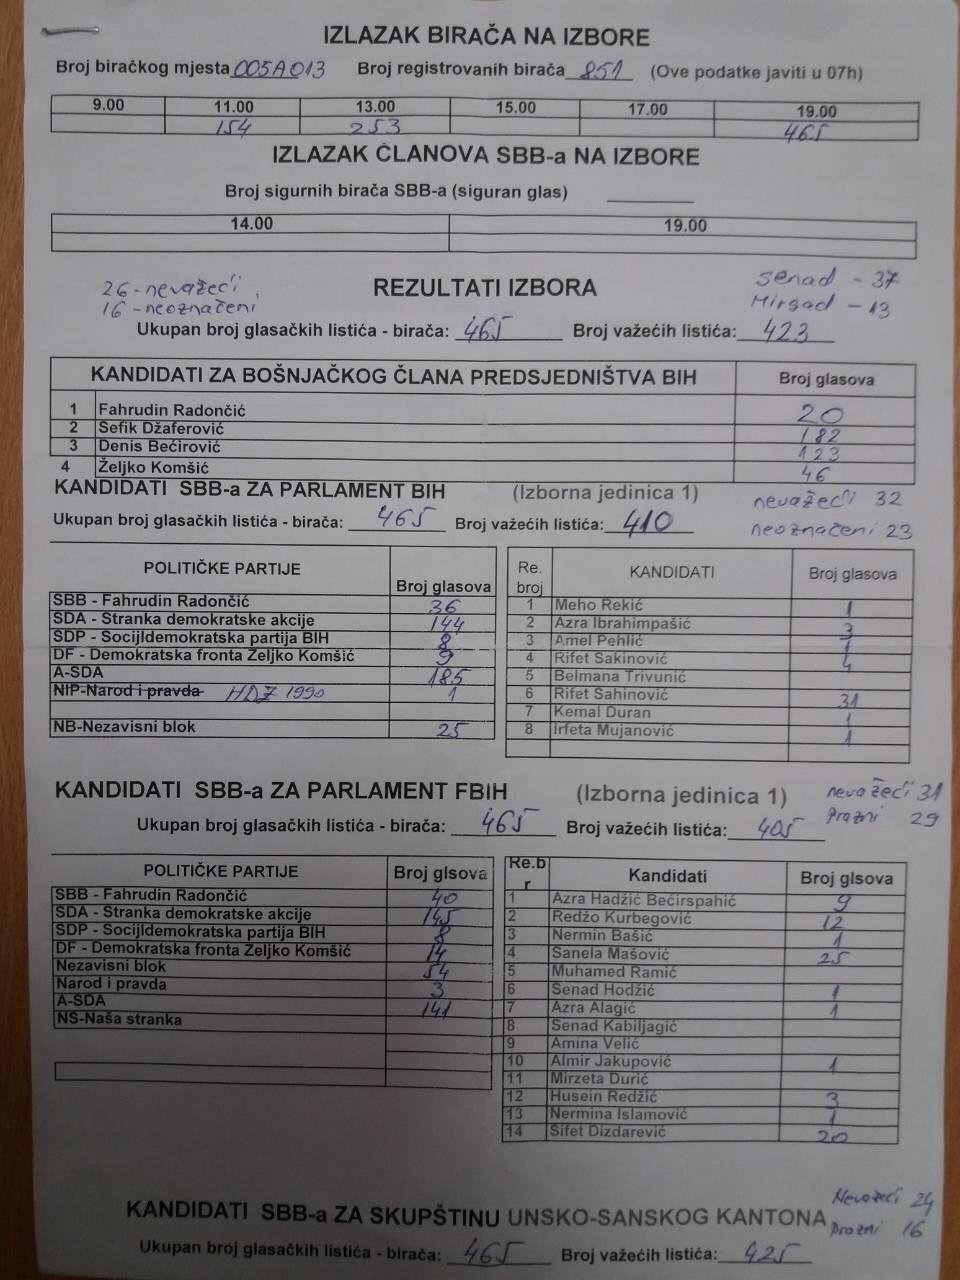 IZLAZAK BIRAČA NA IZBORE
Broj biračkog mjesta 005A013 Broj registrovanih birača 851 (Ove podatke javiti u 07h)
9.00 11.00 13.00 15.00 17.00 19.00
154 253 465
IZLAZAK ČLANOVA SBB-a NA IZBORE
Broj sigurnih birača SBB-a (siguran glas)
14.00 19.00
26-nevažeći
16-neoznačeni
REZULTATI IZBORA
Senad - 37
Mirsad - 13
Ukupan broj glasačkih listića - birača: 465 Broj važećih listića: 423
KANDIDATI ZA BOŠNJAČKOG ČLANA PREDSJEDNIŠTVA BIH Broj glasova
1 Fahrudin Radončić 20
2 Šefik Džaferović 182
3 Denis Bećirović 123
4 Željko Komšić 46
KANDIDATI SBB-a ZA PARLAMENT BIH (Izborna jedinica 1)
nevažeći 32
neoznačeni 23
Ukupan broj glasačkih listića - birača: 465 Broj važećih listića: 410
POLITIČKE PARTIJE Broj glasova
SBB - Fahrudin Radončić 36
SDA - Stranka demokratske akcije 144
SDP - Socijldemokratska partija BIH 8
DF - Demokratska fronta Zeljko Komšić 9
A-SDA 185
NIP-Narod i pravda HDZ 1990 1
NB-Nezavisni blok 25
Re. broj KANDIDATI Broj glasova
1 Meho Rekić 1
2 Azra Ibrahimpašić 3
3 Amel Pehlić 1
4 Rifet Sakinović 4
5 Belmana Trivunić
6 Rifet Sahinović 31
7 Kemal Duran 1
8 Irfeta Mujanović 1
KANDIDATI SBB-a ZA PARLAMENT FBIH (Izborna jedinica 1)
nevažeći 31
Prazni 29
Ukupan broj glasačkih listića - birača: 465 Broj važećih listića: 405
POLITIČKE PARTIJE Broj glsova
SBB - Fahrudin Radončić 40
SDA - Stranka demokratske akcije 145
SDP - Socijldemokratska partija BIH 8
DF - Demokratska fronta Zeljko Komšić 14
Nezavisni blok 54
Narod i pravda 3
A-SDA 141
NS-Naša stranka
Re.br Kandidati Broj glsova
1 Azra Hadžić Bećirspahić 9
2 Redžo Kurbegović 12
3 Nermin Bašić 1
4 Sanela Mašović 25
5 Muhamed Ramić
6 Senad Hodžić 1
7 Azra Alagić 1
8 Senad Kabiljagić
9 Amina Velić
10 Almir Jakupović 1
11 Mirzeta Durić
12 Husein Redžić 3
13 Nermina Islamović 1
14 Sifet Dizdarević 20
KANDIDATI SBB-a ZA SKUPŠTINU UNSKO-SANSKOG KANTONA
Nevažeći 24
Prazni 16
Ukupan broj glasačkih listića - birača: 465 Broj važećih listića: 425